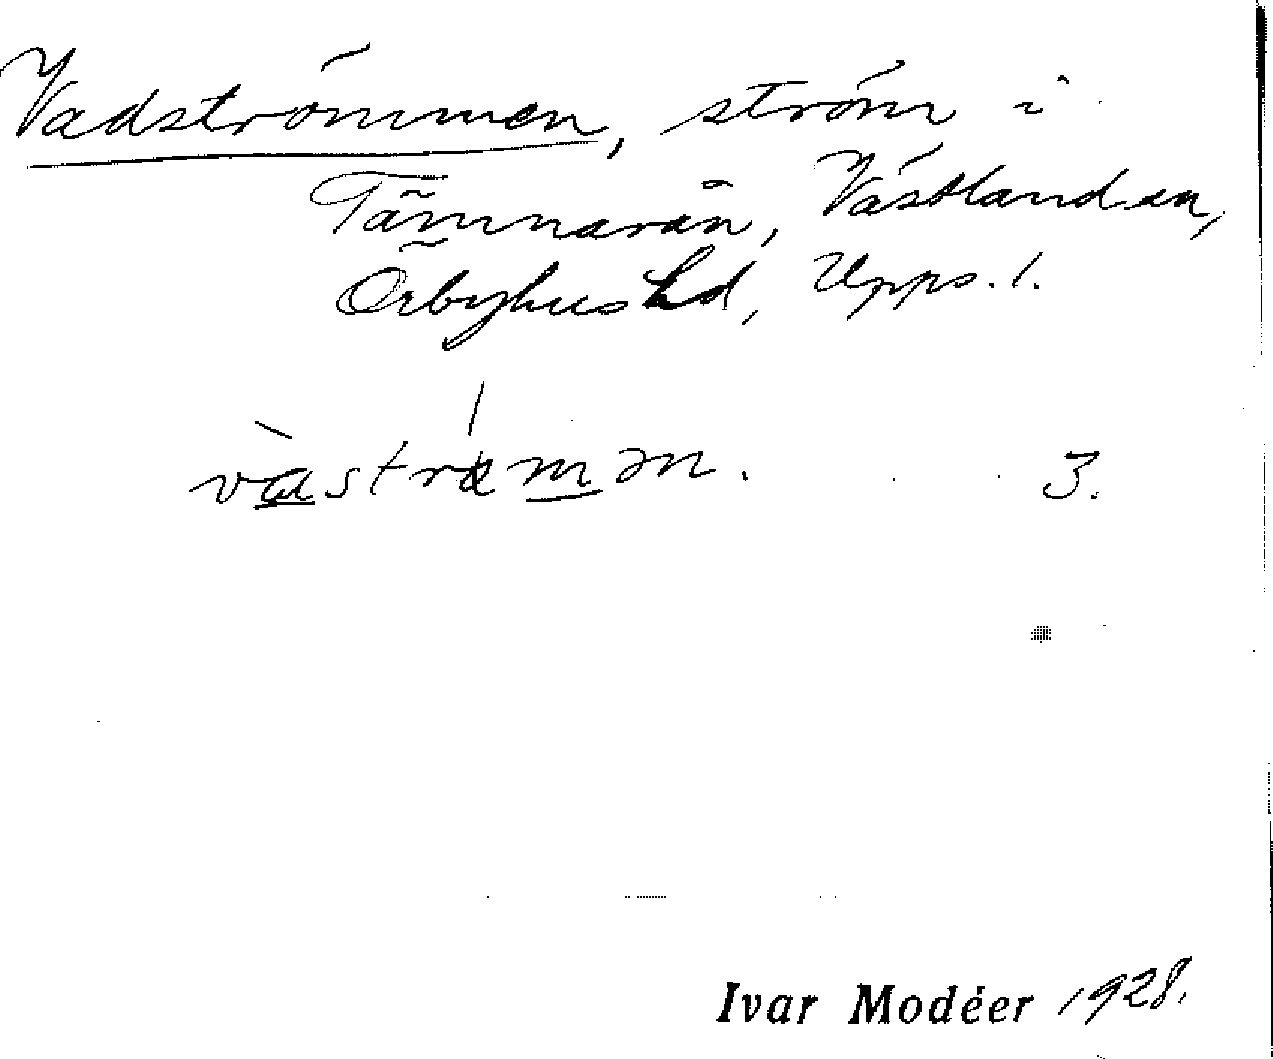 Vadströmmen, ström i
Tämnarån, Västland sn,
Örbyhus hd, Upps. l.
3.
Ivar Modéer 1928.